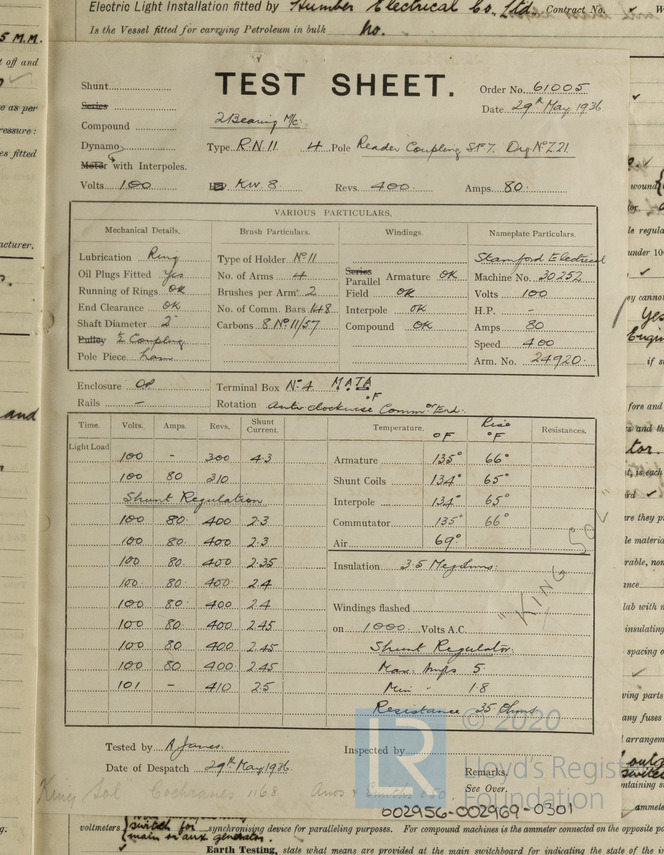 Electric Light Installation fitted by Humber Electrical Co. Ltd. Contract No.
Is the Vessel fitted for carrying Petroleum in bulk No.
TEST SHEET.
Shunt
Series
Compound
Dynamo
Motor with Interpoles.
Order No. 61005
Date 29th May 1936
2 Bearing M/c.
Type R.N. 11 4 Pole Reader Coupling Sk 7. Drg No 721
Volts 100 KW 8 Revs. 400 Amps. 80
VARIOUS PARTICULARS.
Mechanical Details.
Lubrication Ring
Oil Plugs Fitted Yes
Running of Rings OK
End Clearance OK
Shaft Diameter 2"
Pulley ½ Coupling
Pole Piece Lam
Brush Particulars.
Type of Holder No 11
No. of Arms 4
Brushes per Arm 2
No. of Comm. Bars 148
Carbons 8 No 11/57
Windings.
Series
Parallel Armature OK
Field OK
Interpole OK
Compound OK
Nameplate Particulars.
Stamford Electrical
Machine No. 30252
Volts 100
H.P. -
Amps 80
Speed 400
Arm. No. 24920
Enclosure OP Terminal Box No 4 M.A.T.A
Rails - Rotation Anti-clockwise Commr End.
Time. Volts. Amps. Revs. Shunt Current.
Light Load
100 - 300 4.3
100 80 310
Shunt Regulation
100 80 400 2.3
100 80 400 2.3
100 80 400 2.35
100 80 400 2.4
100 80 400 2.4
100 80 400 2.45
100 80 400 2.45
100 80 400 2.45
101 - 410 2.5
Temperature. °F Rise °F Resistances.
Armature 135° 66°
Shunt Coils 134° 65°
Interpole 134° 65°
Commutator 135° 66°
Air 69°
Insulation 35 Megohms.
Windings flashed
on 1000 Volts A.C.
"KING SOL"
Shunt Regulator.
Max. Amps 5
Min " 1.8
Resistance 35 Ohms
Tested by A James.
Date of Despatch 29th May 1936
Inspected by
Remarks,
See Over.
© 2020
LR
Lloyd's Register
Foundation
King Sol Cochranes 1168
002956-002969-0301
voltmeters switch for synchronising device for paralleling purposes. For compound machines is the ammeter connected on the opposite po
main or aux generator.
Earth Testing, state what means are provided at the main switchboard for indicating the state of the i